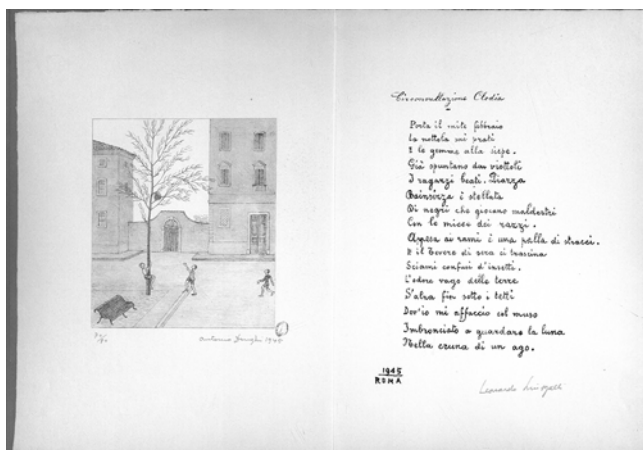 Circonvallazione Clodia
Porta il mite febbraio
La nottola sui prati
E le gemme alla siepe.
Già spuntano dai viottoli
I ragazzi beati. Piazza
Bainsizza è stellata
Di negri che giocano maldestri
Con le micce dei razzi.
Appesa ai rami è una palla di stracci.
E il Tevere di sera ci trascina
Sciami confusi d'insetti.
L'odore vago delle terre
S'alza fin sotto i tetti
Dov'io mi affaccio col muso
Imbronciato a guardare la luna
Nella cruna di un ago.
1945
ROMA
Leonardo Sinisgalli
Antonio Donghi 1945